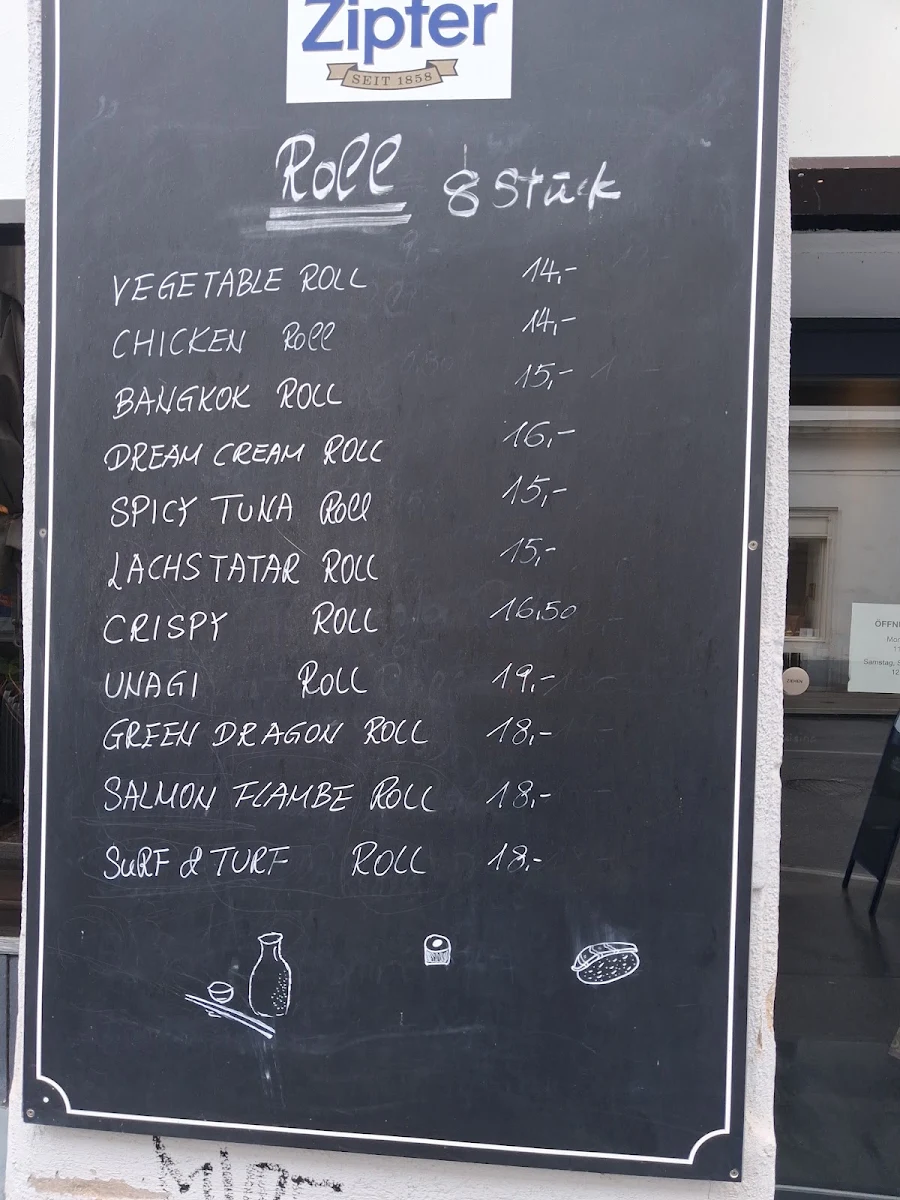 Zipfer
SEIT 1858
Roll 8 Stück
VEGETABLE ROLL 14,-
CHICKEN Roll 14,-
BANGKOK ROLL 15,-
DREAM CREAM ROLL 16,-
SPICY TUNA Roll 15,-
LACHSTATAR ROLL 15,-
CRISPY ROLL 16,50
UNAGI ROLL 19,-
GREEN DRAGON ROLL 18,-
SALMON FLAMBE ROLL 18,-
SURF & TURF ROLL 18,-
ZIEHEN
Samstag,